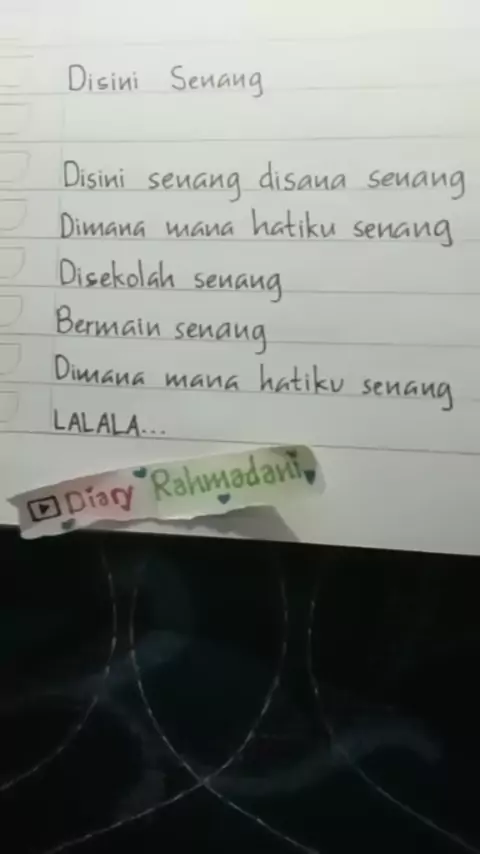 Disini Senang
Disini senang disana senang
Dimana mana hatiku senang
Disekolah senang
Bermain senang
Dimana mana hatiku senang
LALALA...
Diary Rahmadani